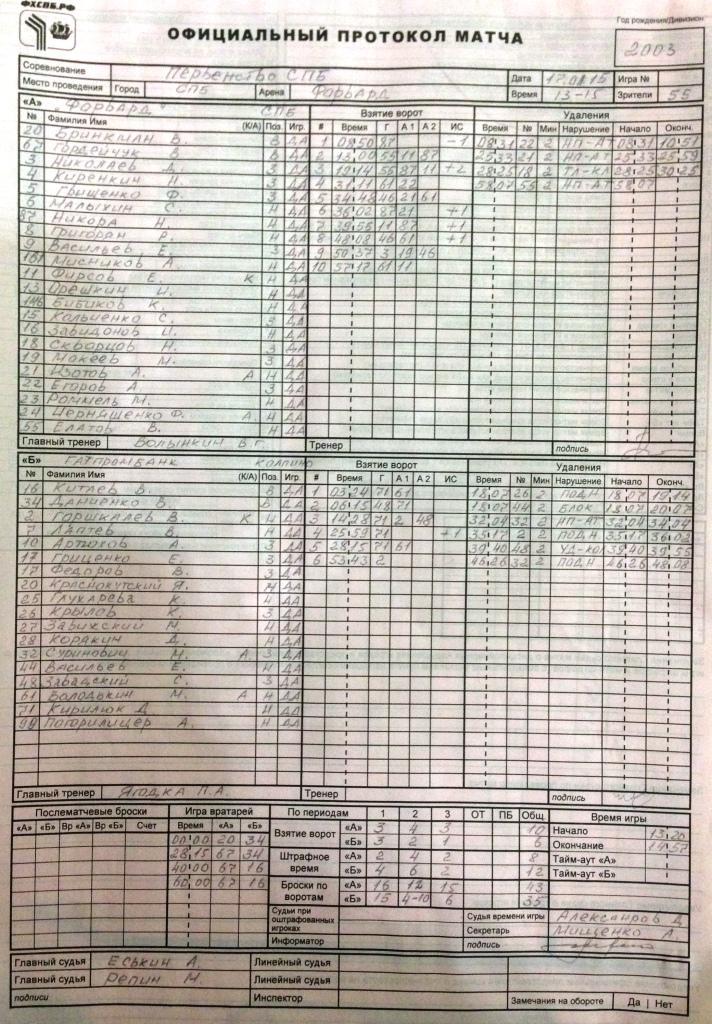 ФХСПБ.РФ
ОФИЦИАЛЬНЫЙ ПРОТОКОЛ МАТЧА
Год рождения/Дивизион
2003
Соревнование Первенство СПБ Дата 17.01.15 Игра №
Место проведения Город СПБ Арена Форвард Время 13-15 Зрители 55
«А» "Форвард" СПБ Взятие ворот Удаления
№ Фамилия Имя (К/А) Поз. Игр. # Время Г А1 А2 ИС Время № Мин Нарушение Начало Оконч.
20 Бринкман В. В ДА 1 08 50 87 -1 08 31 22 2 НП-АТ 08 31 10 51
67 Гордейчук В. В ДА 2 13 00 55 11 87 25 33 21 2 НП-АТ 25 33 25 59
3 Николаев Д. З ДА 3 19 14 55 87 11 +2 28 25 18 2 28 25 30 25
4 Киренкин З ДА 4 31 11 61 22 58 07 55 2 НП-АТ 58 07
5 Грищенко Ф. З ДА 5 34 48 46 21 61
6 Малыхин С. Н ДА 6 36 02 87 21 +1
87 Никора Н. Н ДА 7 39 55 11 87 +1
8 Григорян Р. Н ДА 8 48 08 46 61 +1
9 Васильев Е. З ДА 9 50 37 3 19 46
Мисников А. Н ДА 10 57 17 61 11
11 Фирсов Е. К Н ДА
13 Орешкин И. Н ДА
Бибиков К. Н ДА
15 Кольченко С. З ДА
16 Завидонов И. Н ДА
18 Скворцов Н. З ДА
19 Мокеев М. З ДА
21 Изотов А. А Н ДА
22 Егоров А. З ДА
23 Роммель М. Н ДА
24 Чернышенко Ф. А Н ДА
55 Елатов В. Н ДА
Главный тренер Волынкин В.Г. Тренер подпись
«Б» Газпромбанк Колпино Взятие ворот Удаления
№ Фамилия Имя (К/А) Поз. Игр. # Время Г А1 А2 ИС Время № Мин Нарушение Начало Оконч.
16 Китаев В. В ДА 1 03 24 71 61 18 07 26 2 ПОДН 18 07 19 14
34 Даниенко В. В ДА 2 06 15 48 71 18 07 44 2 БЛОК 18 07 20 07
2 Горшкалев В. К Н ДА 3 14 28 71 2 48 32 04 32 2 НП-АТ 32 04 34 04
7 Лаптев В. Н ДА 4 25 59 71 +1 35 17 2 2 ПОДН 35 17 36 02
10 Артюхов А. З ДА 5 28 15 71 61 39 40 48 2 УД-КОЛ 39 40 39 55
17 Гриценко Е. З ДА 6 53 43 2 46 26 32 2 ПОДН 46 26 48 08
17 Федоров В. З ДА
20 Краснокутский Я. Н ДА
25 Глухарева К. Н ДА
26 Крылов К. З ДА
27 Заринский М. Н ДА
28 Коракин Д. Н ДА
32 Суринович М. А З ДА
44 Васильев Е. Н ДА
48 Завадский С. З ДА
61 Володькин М. А Н ДА
71 Кирилюк Д. Н ДА
99 Погорилицер А. Н ДА
Главный тренер Ягодка П.А. Тренер подпись
Послематчевые броски Игра вратарей По периодам 1 2 3 ОТ ПБ Общ Время игры
«А» «Б» Вр «А» Вр «Б» Счет Время «А» «Б» Взятие ворот «А» 3 4 3 10 Начало 13 20
00 00 20 34 «Б» 3 2 1 6 Окончание 14 57
28 15 67 34 Штрафное время «А» 2 4 2 8 Тайм-аут «А»
40 00 67 16 «Б» 4 6 2 12 Тайм-аут «Б»
60 00 67 16 Броски по воротам «А» 16 12 15 43
«Б» 15 4-10 6 35
Судьи при оштрафованных игроках Судья времени игры Александров Д.
Секретарь Мищенко А.
Информатор подпись
Главный судья Еськин А. Линейный судья
Главный судья Репин М. Линейный судья
подписи Инспектор Замечания на обороте Да | Нет